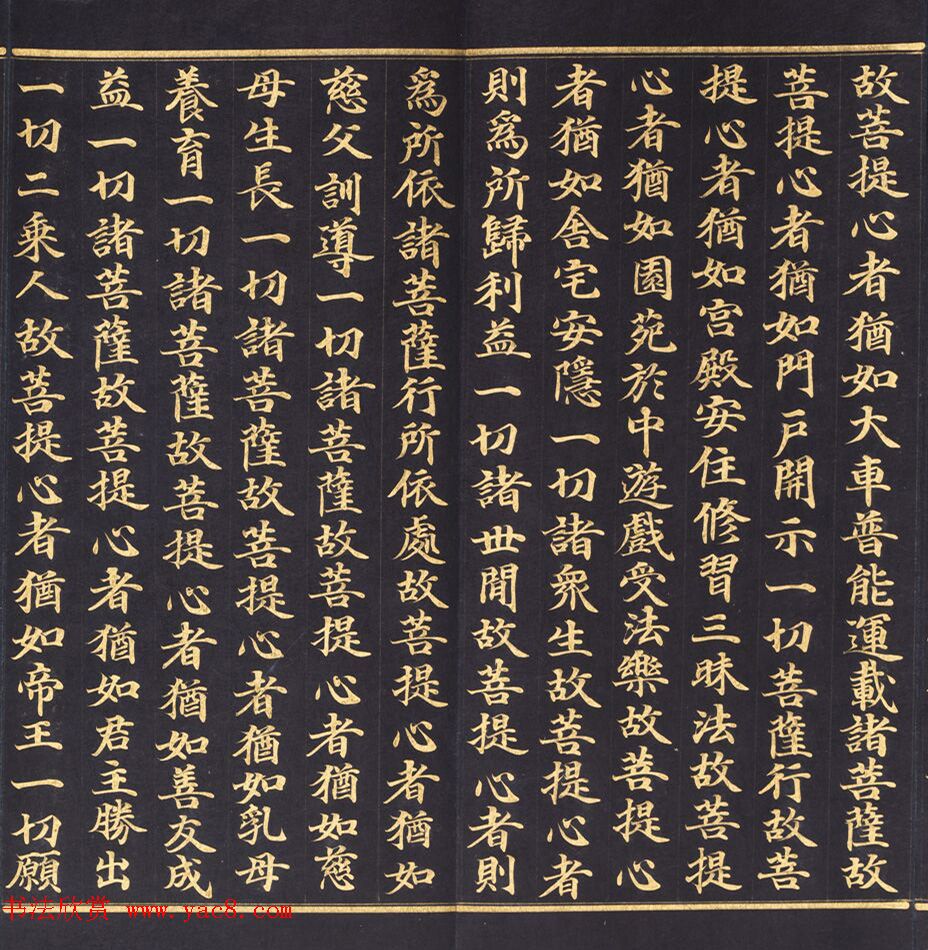 故菩提心者猶如大車普能運載諸菩薩故
菩提心者猶如門戶開示一切菩薩行故菩
提心者猶如宮殿安住修習三昧法故菩提
心者猶如園苑於中遊戲受法樂故菩提心
者猶如舍宅安隱一切諸衆生故菩提心者
則爲所歸利益一切諸世間故菩提心者則
爲所依諸菩薩行所依處故菩提心者猶如
慈父訓導一切諸菩薩故菩提心者猶如慈
母生長一切諸菩薩故菩提心者猶如乳母
養育一切諸菩薩故菩提心者猶如善友成
益一切諸菩薩故菩提心者猶如君主勝出
一切二乘人故菩提心者猶如帝王一切願
书法欣赏 www.yac8.com